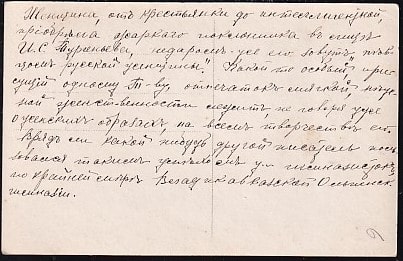 Женщина, отъ крестьянки до интеллигентной,
прiобрѣла жаркаго поклонника въ лицѣ
И.С. Тургенева, недаромъ-же его зовутъ „пѣв-
цомъ русской женщины“. Какой то особый, при-
сущiй одному Т-ву, отпечатокъ мягкой, неж-
ной женственности лежитъ, не говоря уже
о женскихъ образахъ, на всемъ творчествѣ его.
Врядъ ли какой нибудь другой писатель поль-
зовался такимъ успѣхомъ у гимназистокъ,
по крайней мѣрѣ Владикавказской Ольгинск.
гимназiи.